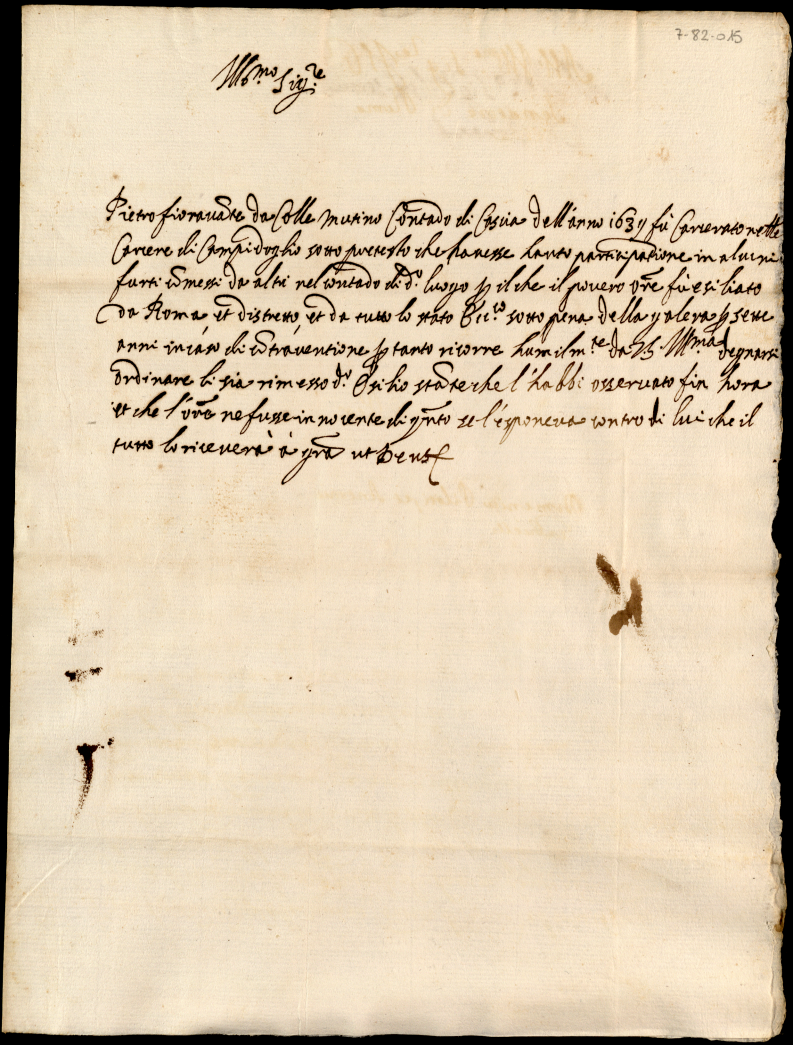 7-82-015
Ill.mo Sig.re
Pietro fioravāte da Colle Mutino Cōntado di Cascia dell'anno 1639 fù Carcerato nelle
Carcere di Campidoglio sotto pretesto che havesse havuto participatione in alcuni
furti cōmessi da altri nel cōntado di d.o luogo ꝑ il che il povero Ore fù esiliato
da Roma et distretto, et da tutto lo stato Ecc.co sotto pena della galera ꝑ sette
anni in cáso di cōtraventione ꝑ tanto ricorre humilm.te da V.S. Ill.ma degnarsi
ordinare li sia rimesso d.o Esilio stāte che l'habbi osservato fin hora
et che l'Ore ne fusse innocente di qnto se l'esponeva contro di lui che il
tutto lo riceverà à gra ut Deus